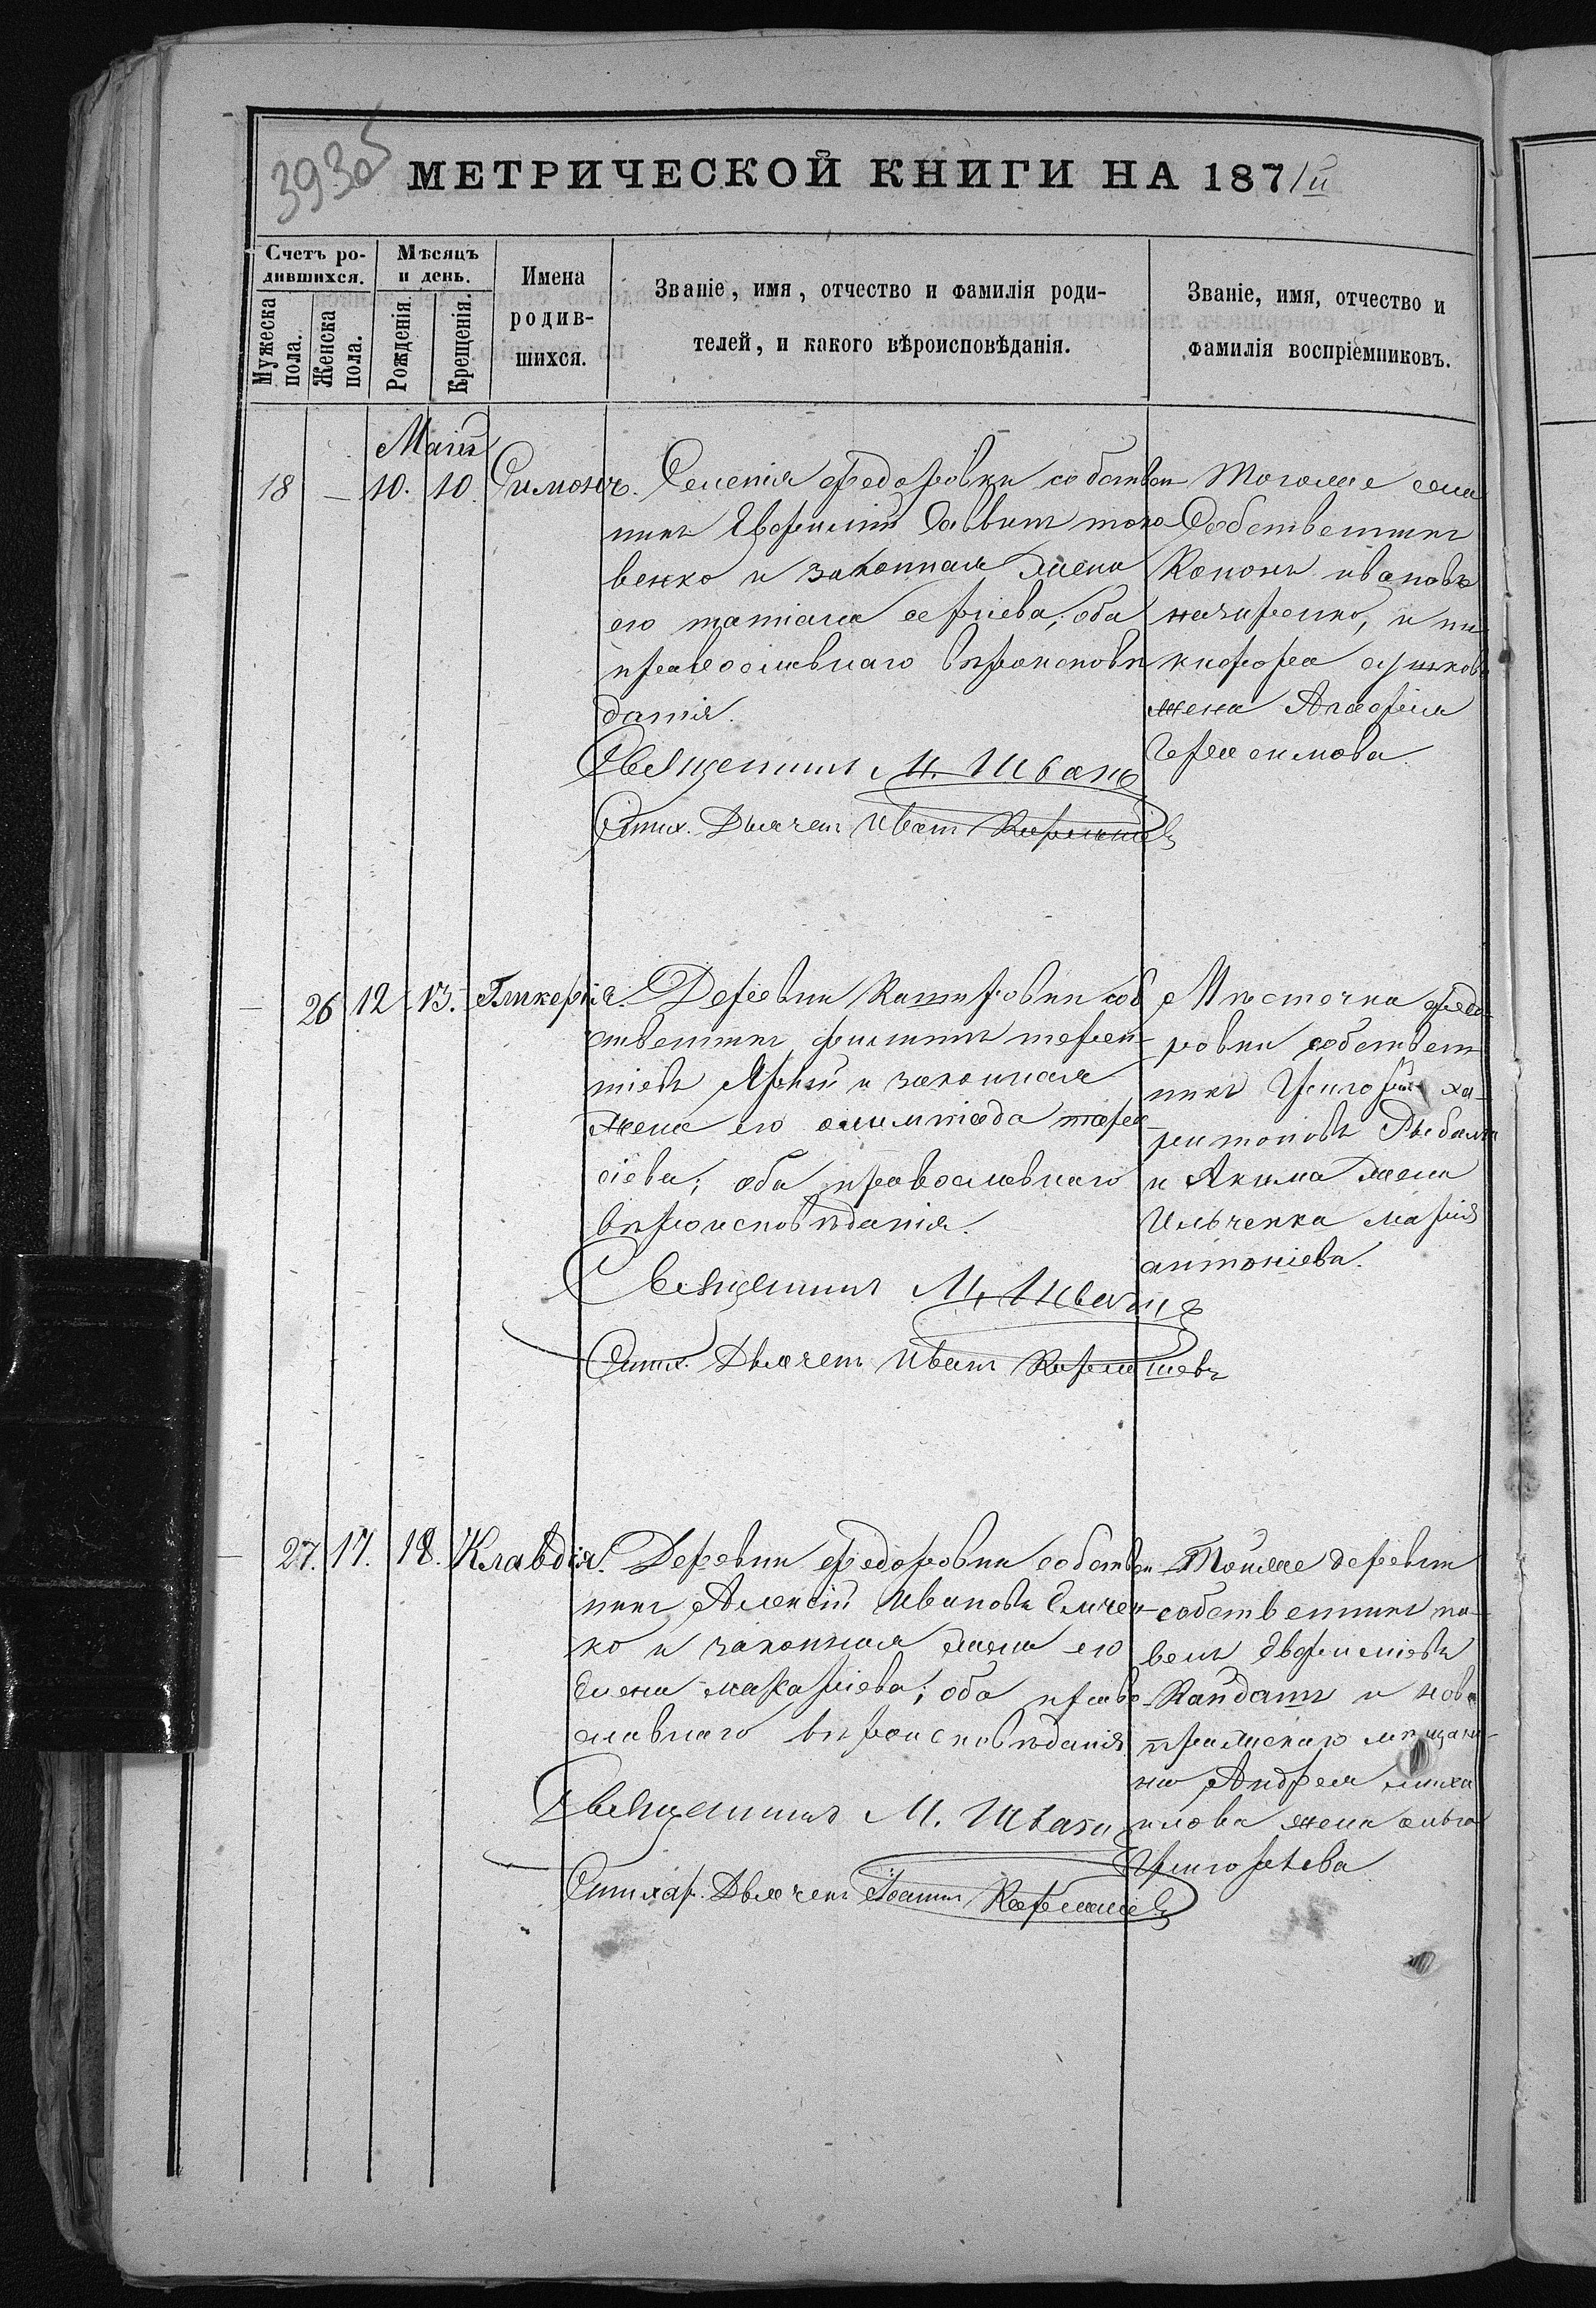 МЕТРИЧЕСКОЙ КНИГИ НА 1871й
Счетъ ро-
дившихся.
Мужеска пола.
Женска пола.
Мѣсяцъ
и день.
Рожденія.
Крещенія.
Имена
родив-
шихся.
Званіе, имя, отчество и фамилія роди-
телей, и какого вѣроисповѣданія.
Званіе, имя, отчество и
фамилія воспріемниковъ.
Маій
18 — 10. 10. Симонъ.
Селенія Федоровки собствен
никъ Саввинъ
и законная жена
его татіана сергіева; оба
православнаго вѣроисповѣ
данія.
Священникъ М. Швачъ
Стих. Дьячекъ Иванъ
Тогоже села
Собственникъ
Кононъ ивановъ
и ни
кифора
жена
Герасимова.
— 26 12 13. Гликерія.
Деревни соб
ственникъ филиппъ терен-
тіевъ и законная
жена его олимпіада тара
сіева; оба православнаго
вѣроисповѣданія.
Священникъ М. Швачъ
Стих. Дьячекъ Иванъ
Мѣстечка Федо-
ровки собствен
никъ Григорій ха-
ритоновъ Рыбалка
и Акима жена
Ильченка марія
антоніева.
— 27. 17. 18. Клавдія.
Деревни Федоровки собствен
никъ Алексій Ивановъ
ко и законная жена его
Елена макаріева; оба право
славнаго вѣроисповѣданія
Священникъ М. Швачъ
Стихар. Дьячекъ Іоаннъ
Тойже деревни
собственникъ па-
велъ Евфиміевъ
и ново
мѣщани-
на Андрея миха
илова жена ольга
Григорьева